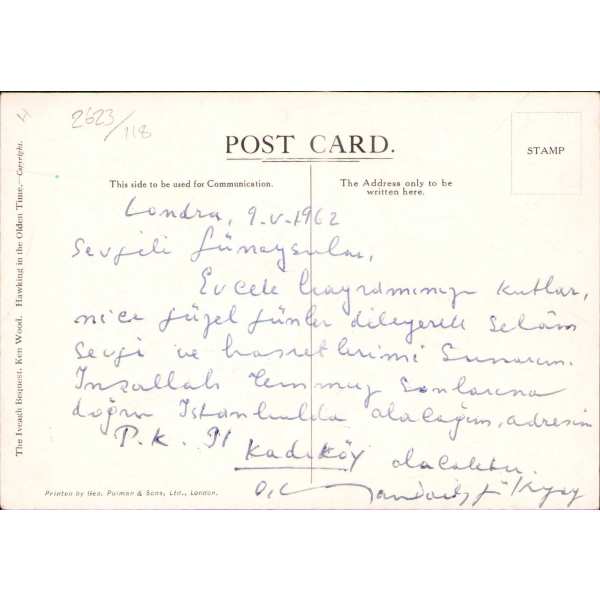 2623/118
POST CARD.
STAMP
This side to be used for Communication.
The Address only to be
written here.
Londra, 9.V.1962
Sevgili Günaysular,
Evcek bayramınızı kutlar,
nice güzel günler dileyerek selâm
sevgi ve hasretlerimi sunarım.
İnşallah Temmuz sonlarına
doğru İstanbulda olacağım, adresim
P.K. 91
Kadıköy olacaktır.
The Iveagh Bequest, Ken Wood. Hawking in the Olden Time.—Copyright.
Printed by Geo. Pulman & Sons, Ltd., London.